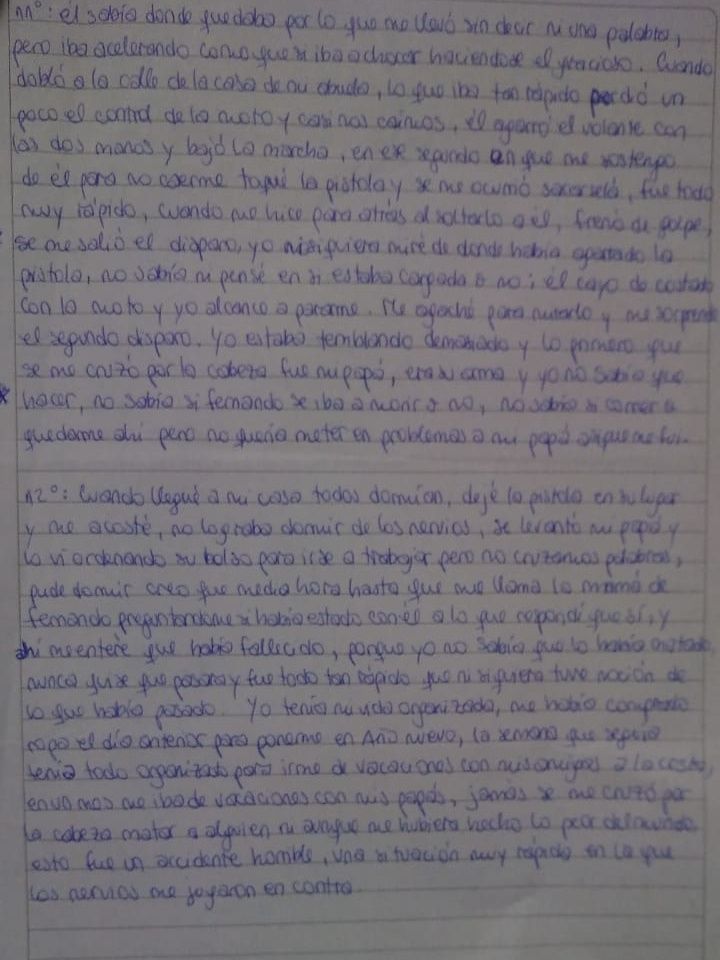 11°: él sabía donde quedaba por lo que me llevó sin decir ni una palabra,
pero iba acelerando como que si iba a chocar haciendose el gracioso. Cuando
dobló a la calle de la casa de mi abuda, lo que iba tan rápido perdió un
poco el control de la moto y casi nos caimos, él agarró el volante con
las dos manos y bajó la marcha, en ese segundo en que me sostengo
de él para no caerme toqué la pistola y se me ocurrió sacársela, fue todo
muy rápido, cuando me hice para atrás al soltarlo a él, frenó de golpe,
se me salió el disparo, yo ni siquiera miré de donde había agarrado la
pistola, no sabía ni pensé en si estaba cargada o no; él cayó de costado
con la moto y yo alcancé a pararme. Me agaché para mirarlo y me sorprende
el segundo disparo. Yo estaba temblando demasiado y lo primero que
se me cruzó por la cabeza fue mi papá, era su arma y yo no sabía que
* hacer, no sabía si fernando se iba a morir o no, no sabía si correr o
quedarme ahí pero no quería meter en problemas a mi papá asique me fui.
12°: Cuando llegué a mi casa todos dormían, dejé la pistola en su lugar
y me acosté, no lograba dormir de los nervios, se levantó mi papá y
lo vi ordenando su bolso para irse a trabajar pero no cruzamos palabras,
pude dormir creo que media hora hasta que me llama la mamá de
fernando preguntandome si había estado con él a lo que respondí que sí, y
ahí me enteré que había fallecido, porque yo no sabía que lo había matado,
nunca quise que pasara y fue todo tan rápido que ni siquiera tuve noción de
lo que había pasado. Yo tenía mi vida organizada, me había comprado
ropa el día anterior para ponerme en Año nuevo, la semana que seguía
tenía todo organizado para irme de vacaciones con mis amigas a la costa,
en un mes me iba de vacaciones con mis papás, jamás se me cruzó por
la cabeza matar a alguien ni aunque me hubiera hecho lo peor del mundo,
esto fue un accidente horrible, una situación muy rápida en la que
los nervios me jugaron en contra.